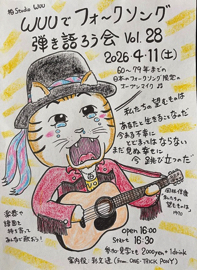 Studio WUU
WUUでフォークソング
弾き語ろう会 Vol.28
2026 4・11(土)
60〜79年までの
日本のフォークソング限定の
オープンマイク♫
私たちの望むものは
あなたと生きることなのだ
今ある不幸に
とどまってはならない
まだ見ぬ幸せに
今跳び立つのだ
岡林信康
私たちの
望むものは
1970
楽器や
譜面を
持ち寄って
みんなで歌おう!
open 16:00
Start 16:30
参加・見学とも 2000yen+1drink
案内役:
(from ONE TRICK PONY)